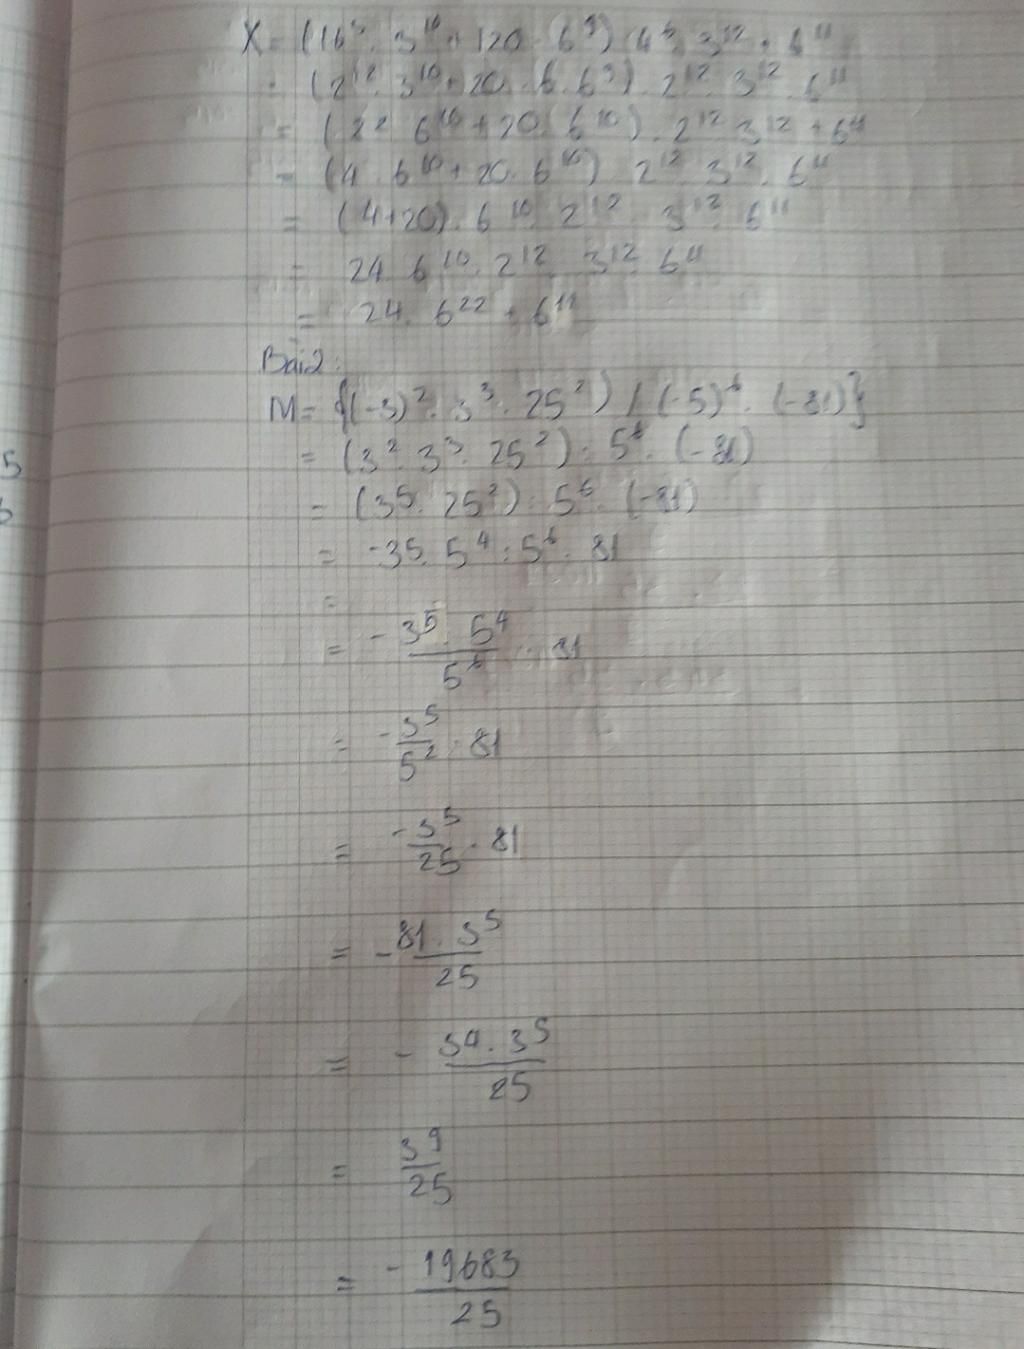 X = (16³ · 3¹⁰ + 120 · 6⁹) 4⁶ · 3¹² + 6¹¹
= (2¹² · 3¹⁰ + 20 · 6 · 6⁹) · 2¹² · 3¹² · 6¹¹
= (2² 6¹⁰ + 20 (6¹⁰) · 2¹² 3¹² + 6¹¹
= (4 · 6¹⁰ + 20 · 6¹⁰) 2¹² · 3¹² · 6¹¹
= (4+20) · 6¹⁰ · 2¹² · 3¹² · 6¹¹
= 24 · 6¹⁰ · 2¹² · 3¹² · 6¹¹
= 24 · 6²² + 6¹¹
Bài 2:
M = {(-3)² · 3³ · 25²) / (-5)⁶ · (-81)}
= (3² · 3³ · 25²) : 5⁶ · (-81)
= (3⁵ · 25²) : 5⁶ · (-81)
= -35 · 5⁴ : 5⁶ · 81
=
= - 3⁵ · 5⁴ / 5⁶ · 81
= -3⁵ / 5² · 81
= -3⁵ / 25 · 81
= - 81 · 3⁵ / 25
= - 3⁴ · 3⁵ / 25
= 3⁹ / 25
= - 19683 / 25
5